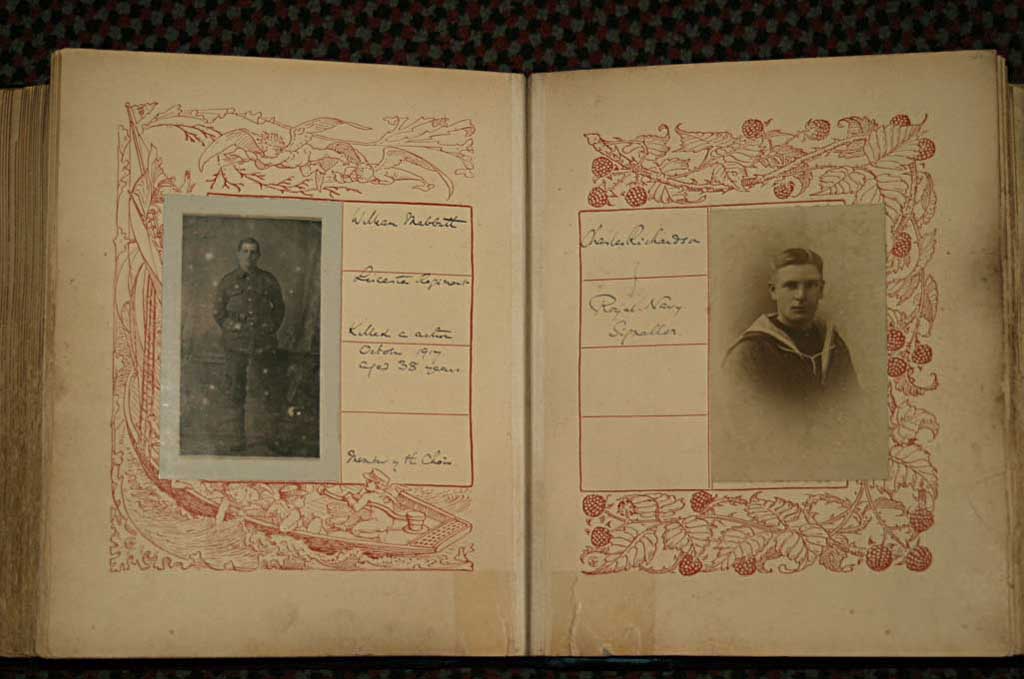 William Mabbutt
Leicester Regiment
Killed in action
October 1917
aged 38 years
Member of the Choir.
Charles Richardson
Royal Navy
Signaller.